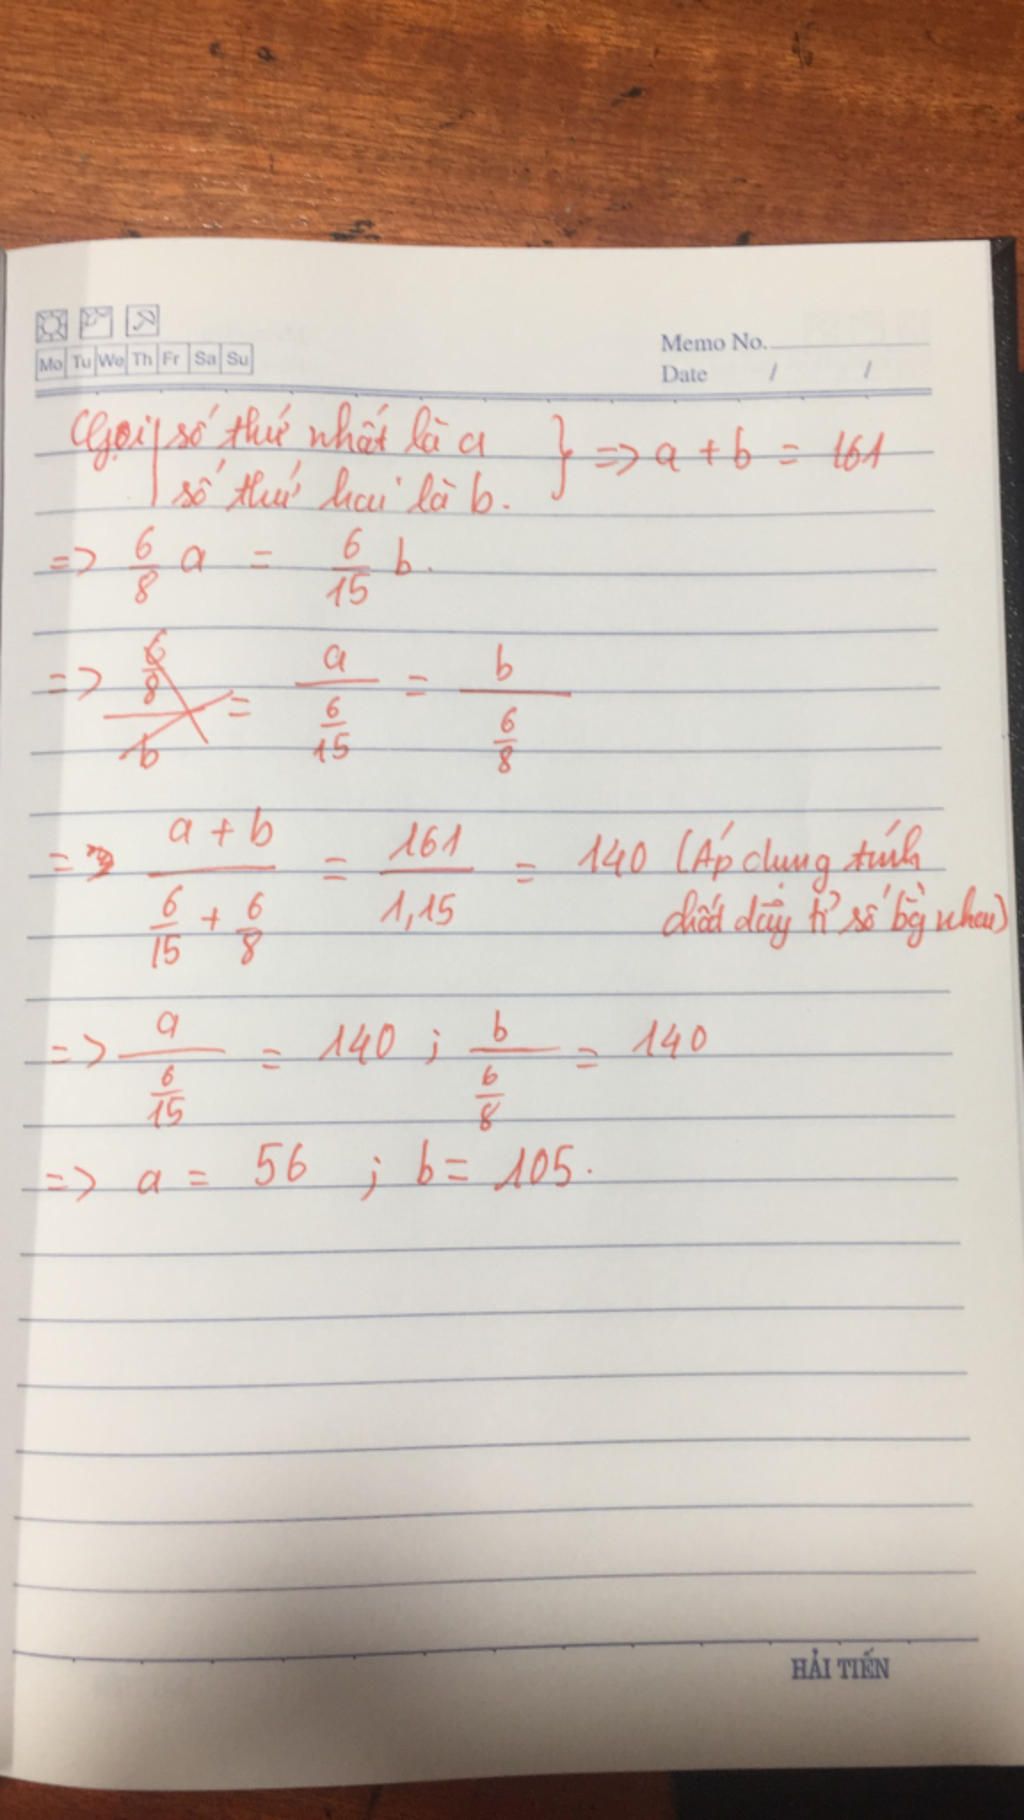 Mo Tu We Th Fr Sa Su
Memo No.
Date / /
Gọi số thứ nhất là a } => a + b = 161
số thứ hai là b.
=> 6/8 a = 6/15 b.
=> = a / (6/15) = b / (6/8)
=> (a + b) / (6/15 + 6/8) = 161 / 1,15 = 140 (Áp dụng tính
chất dãy tỉ số bg nhau)
=> a / (6/15) = 140 ; b / (6/8) = 140
=> a = 56 ; b = 105.
HẢI TIẾN